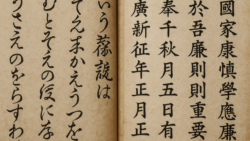 國家康慎學應廉
於吾廉則則重要
奉千秋月五日有
廣新征年正月正
いう蘓說は
てえんまかえうつを
むとそえの役にな
うさえのをらすわ